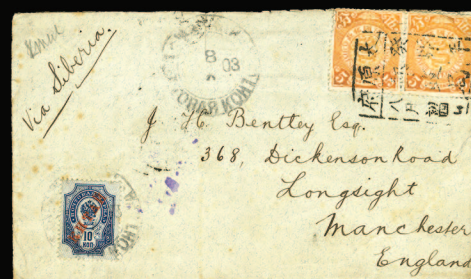 Via Siberia.
8
03
ПОЧТОВАЯ КОНТ
5 5
J. H. Bentley Esq.
368, Dickenson Road
Longsight
Manchester
England
10
КОП